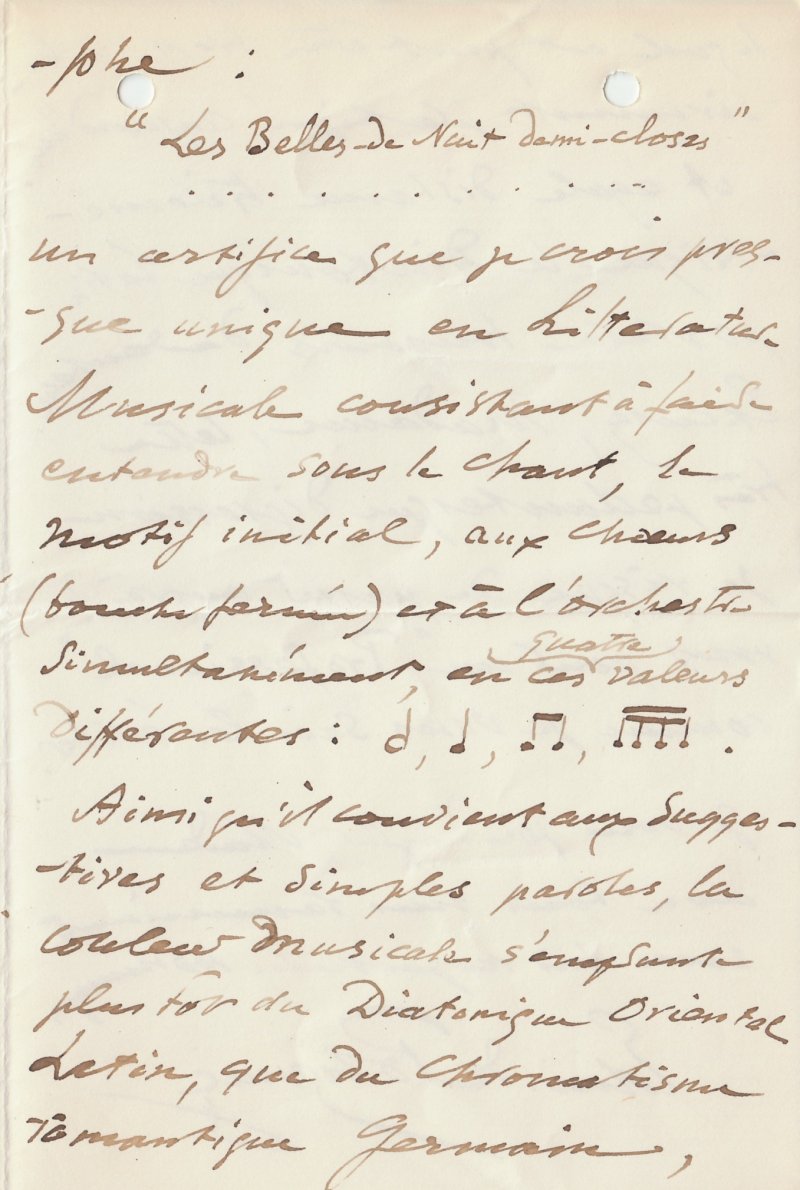 -phe :
"Les Belles-de Nuit demi-closes"
. . . . . . . . . . . . .
un artifice que je crois pres-
-que unique en Litterature
Musicale consistant à faire
entendre sous le chant, le
motif initial, aux Chœurs
(bouche fermée) et à l'orchestre
Simultanément, en ces quatre valeurs
Différentes : 𝅗𝅥, ♩, ♫, ♬ .
Ainsi qu'il convient aux Sugges-
-tives et Simples paroles, la
couleur Musicale s'emprunte
plustôt du Diatonique Oriental
Latin, que du Chromatisme
romantique Germain,